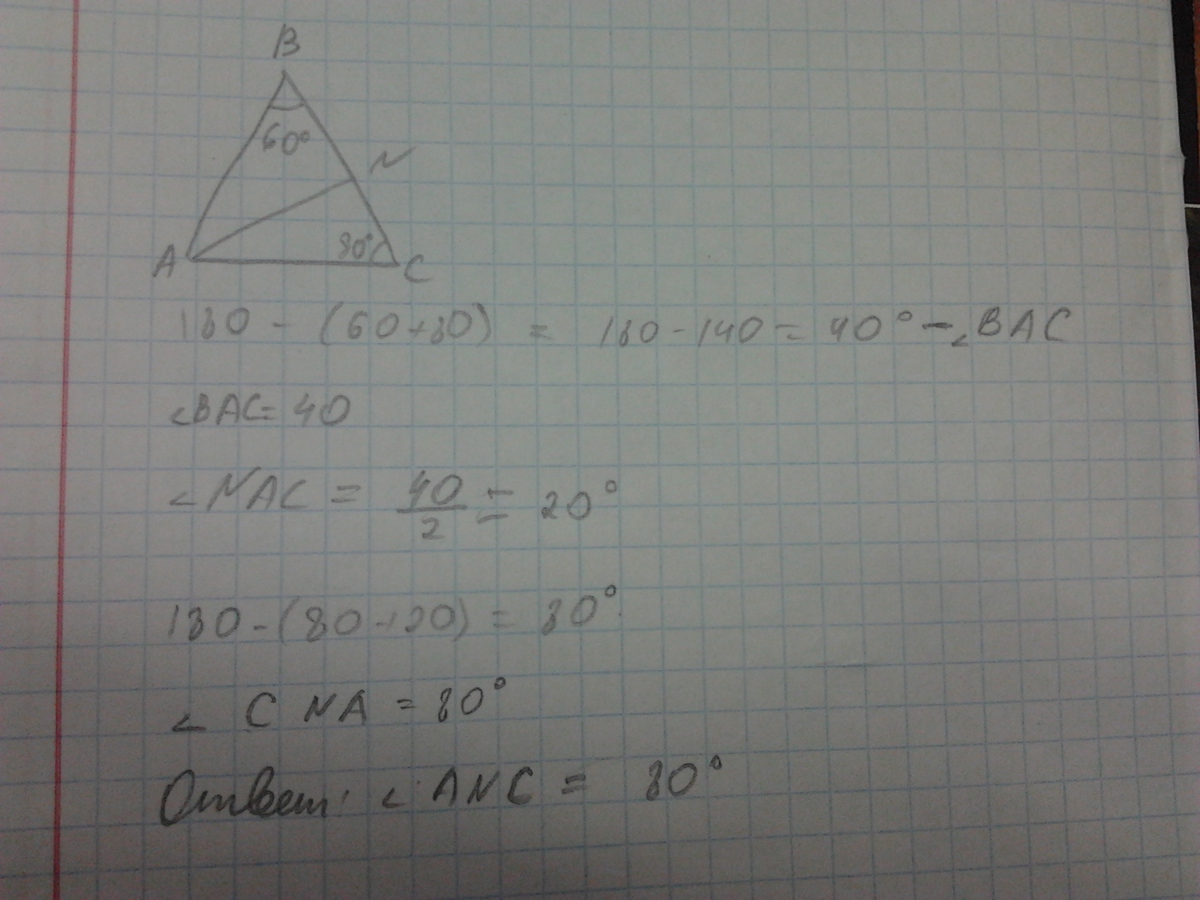 B
60°
N
A
80°
C
180 - (60+80) = 180-140 = 40° - ∠BAC
∠BAC= 40
∠NAC = 40/2 = 20°
180-(80+20) = 80°
∠ CNA = 80°
Ответ: ∠ANC = 80°